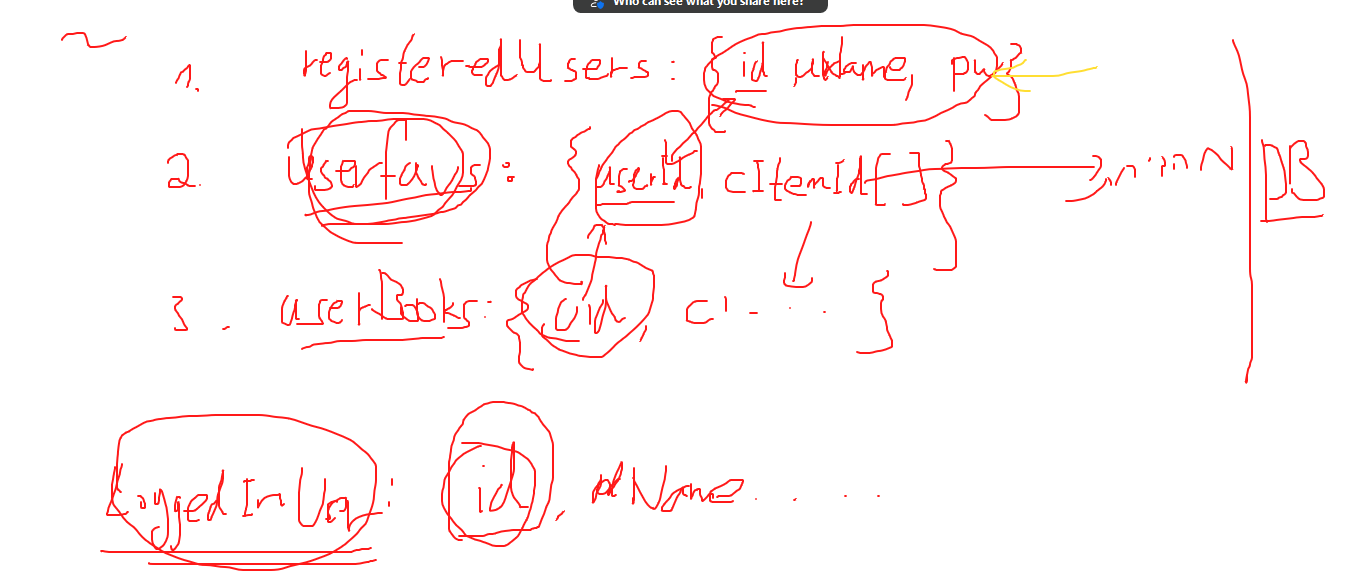 Who can see what you share here?
1. registeredUsers: {id, uName, pw}
2. Userfavs: {userId, cItemId[]}
DB
3. userBooks: {uid, c' - . . . }
LoggedInUsr: id, Name. . . .